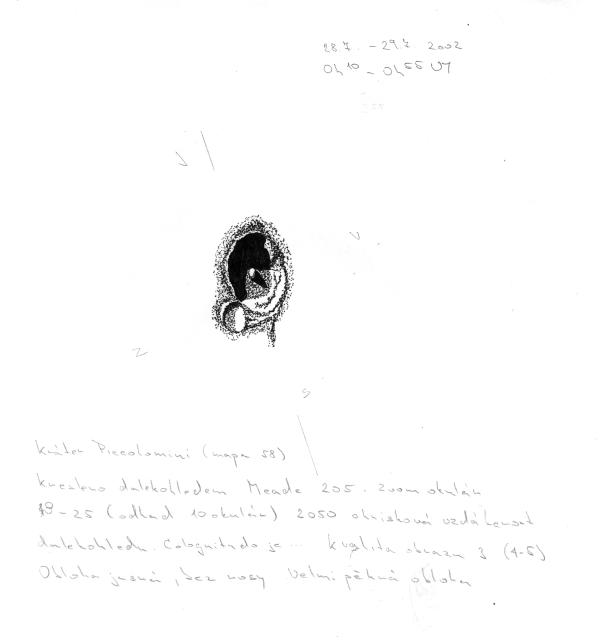 28.7. - 29.7. 2002
0h10 - 0h55 UT
J
V
Z
S
Kráter Piccolomini (mapa 58)
kresleno dalekohledem Meade 205. zoom okulár
18-25 (odhad 10 okulár) 2050 ohnisková vzdálenost
dalekohledu. Colognitudo je ... kvalita obrazu 3 (1-5)
Obloha jasná, bez rosy velmi pěkná obloha